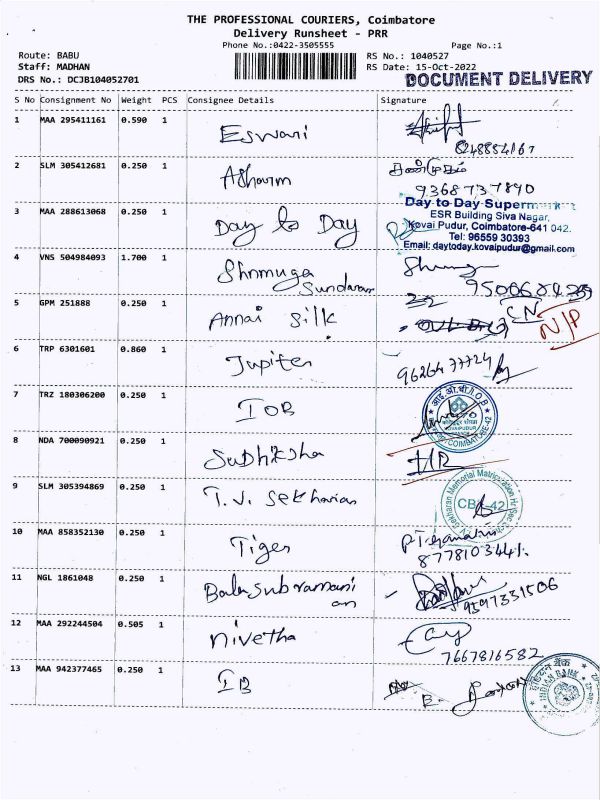 THE PROFESSIONAL COURIERS, Coimbatore
Delivery Runsheet - PRR
Phone No.:0422-3505555 Page No.:1
Route: BABU RS No.: 1040527
Staff: MADHAN RS Date: 15-Oct-2022
DRS No.: DCJB104052701 DOCUMENT DELIVERY
S No Consignment No Weight PCS Consignee Details Signature
1 MAA 295411161 0.590 1 Eswari
8248854167
2 SLM 305412681 0.250 1 Asharm சண்முகம்
9368737890
3 MAA 288613068 0.250 1 Day to Day Day to Day Supermarket
ESR Building Siva Nagar,
Kovai Pudur, Coimbatore-641 042.
Tel: 96559 30393
Email: daytoday.kovaipudur@gmail.com
4 VNS 504984093 1.700 1 Shnmuga
Sundaram
5 GPM 251888 0.250 1 Annai Silk CN N/P
6 TRP 6301601 0.860 1 Jupiter 9626477724
7 TRZ 180306200 0.250 1 IOB
8 NDA 700090921 0.250 1 Subhiksha
9 SLM 305394869 0.250 1 T.V. Sekharan CBE-42
10 MAA 858352130 0.250 1 Tiger
8778103441
11 NGL 1861048 0.250 1 Balasubramani
an 9597331506
12 MAA 292244504 0.505 1 Nivetha
7667816582
13 MAA 942377465 0.250 1 IB INDIAN BANK